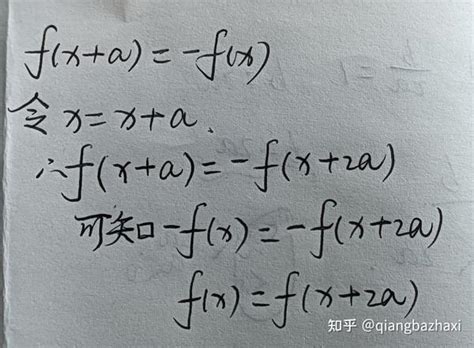 f(x+a)=-f(x)
令 x=x+a.
∴f(x+a)=-f(x+2a)
可知-f(x)=-f(x+2a)
f(x)=f(x+2a)
知乎 @qiangbazhaxi